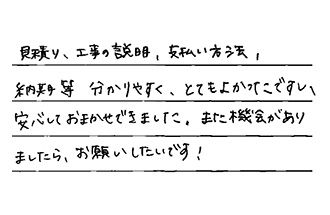 見積り、工事の説明、支払い方法、
納期等 分かりやすく、とてもよかったですし、
安心しておまかせできました。また機会があり
ましたら、お願いしたいです！